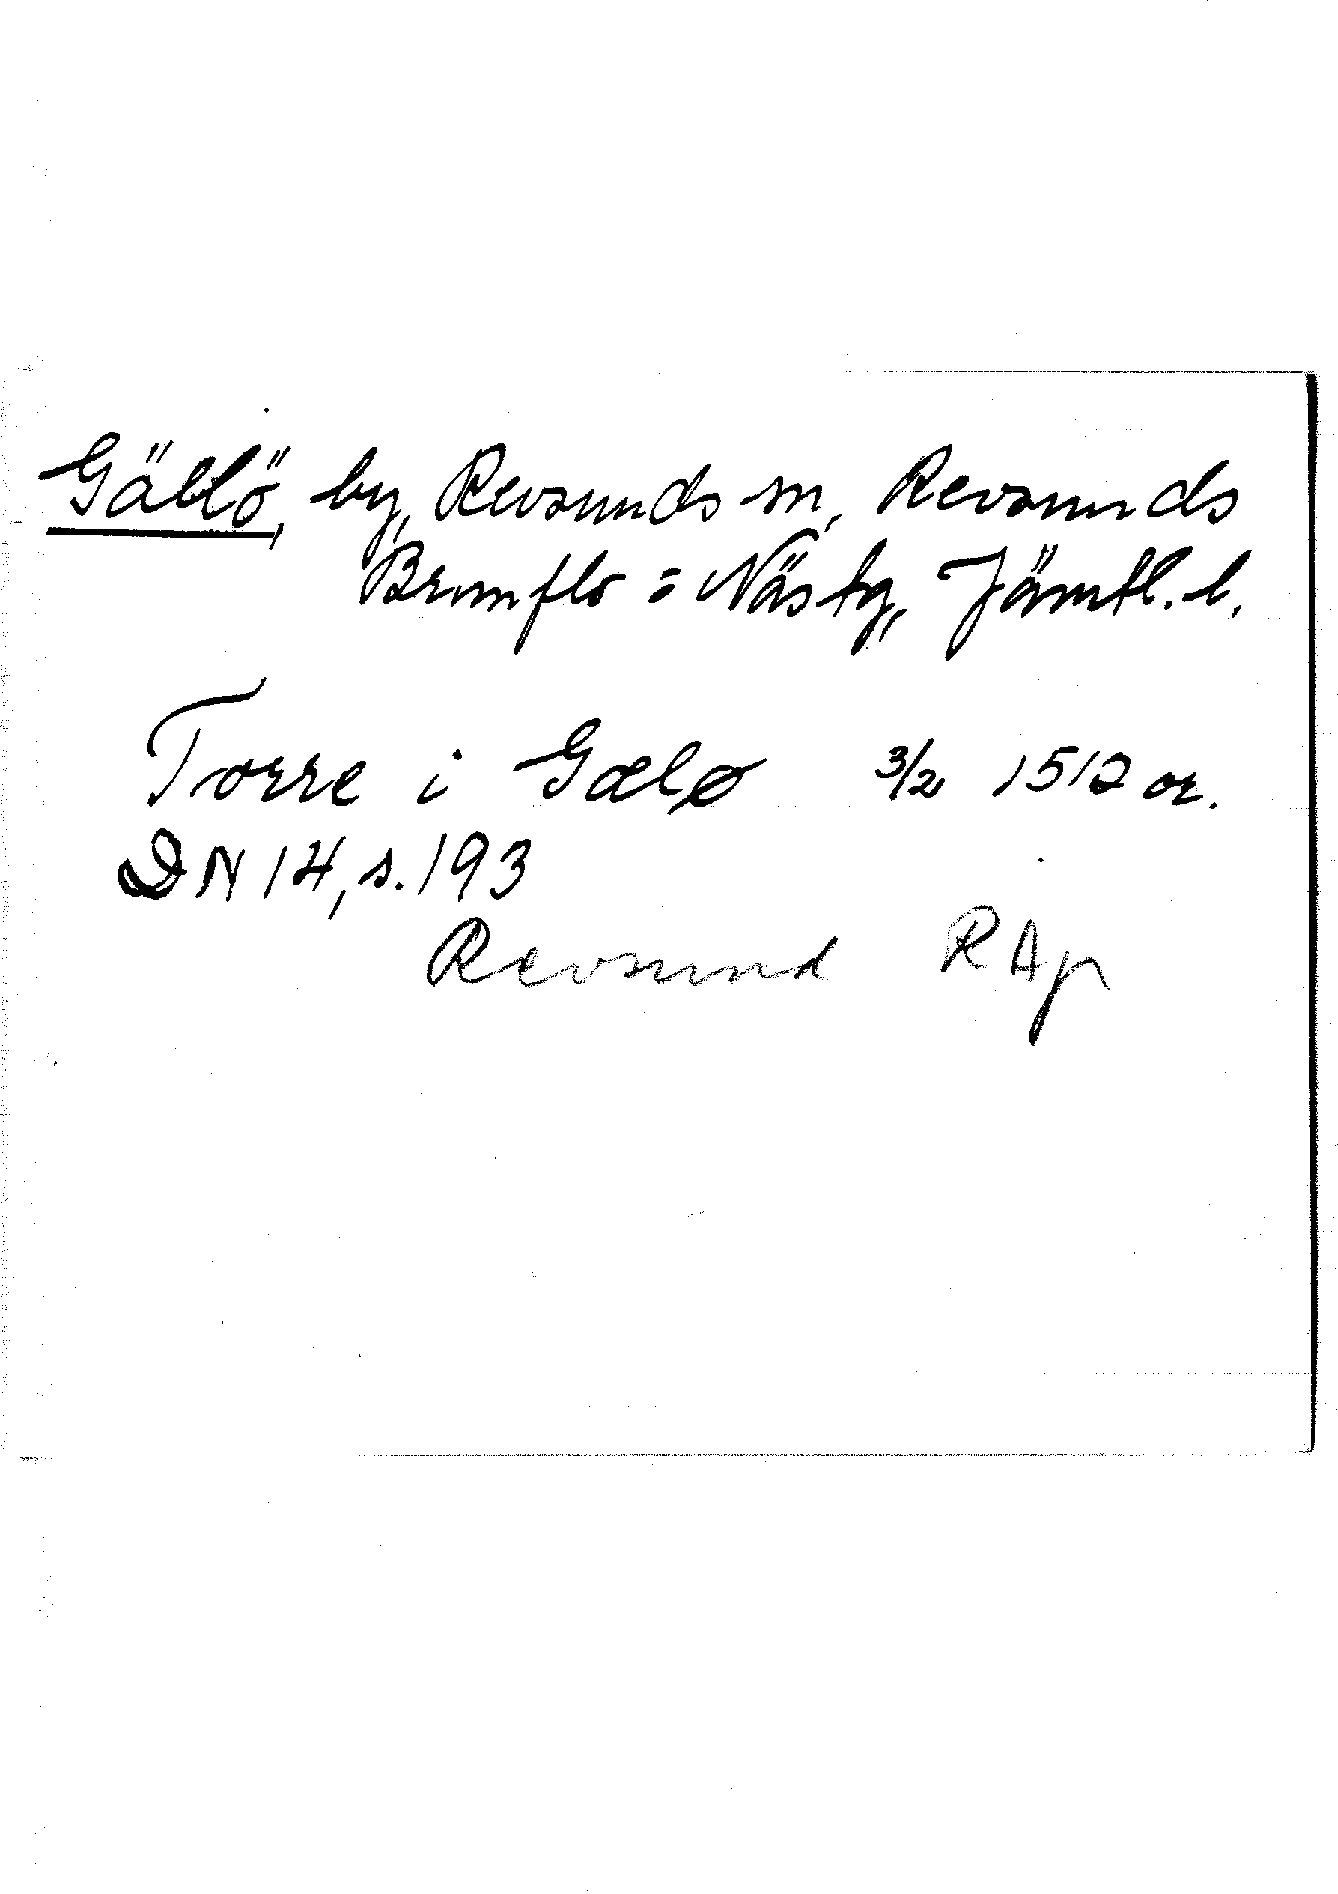 Gällö, by, Revsunds sn, Revsunds
Brunflo o Näs tg, Jämtl. l.
Torre i Gælø 3/2 1512 or.
DN 14, s. 193
Revsund RAp